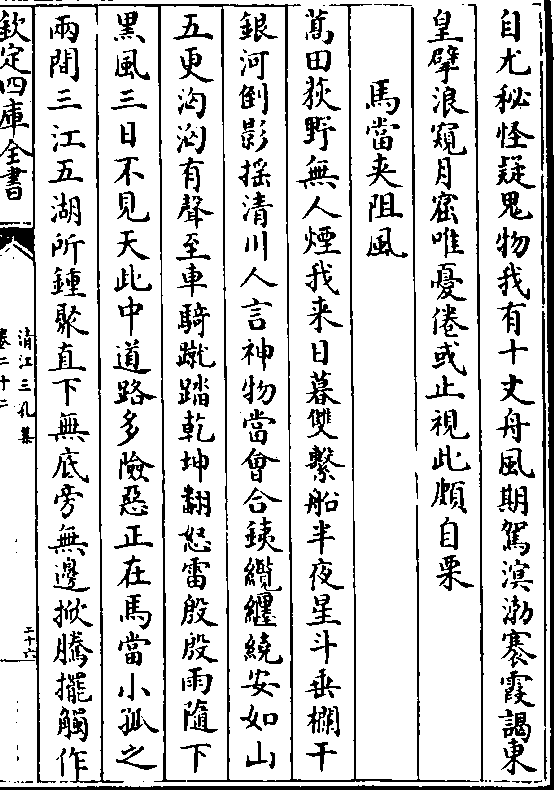 自尤秘怪疑鬼物我有十丈舟風期駕溟渤褰霞謁東
皇擘浪窺月窟唯憂倦或止視此頗自栗
馬當夾阻風
蒿田荻野無人煙我来日暮雙繫船半夜星斗垂欄干
銀河倒影摇清川人言神物當會合鉄纜纒繞安如山
五更洶洶有聲至車騎蹴踏乾坤翻怒雷殷殷雨隨下
黒風三日不見天此中道路多險惡正在馬當小孤之
兩間三江五湖所鍾聚直下無底旁無邊掀騰擺觸作
欽定四庫全書
清江三孔集
卷二十二
二十六